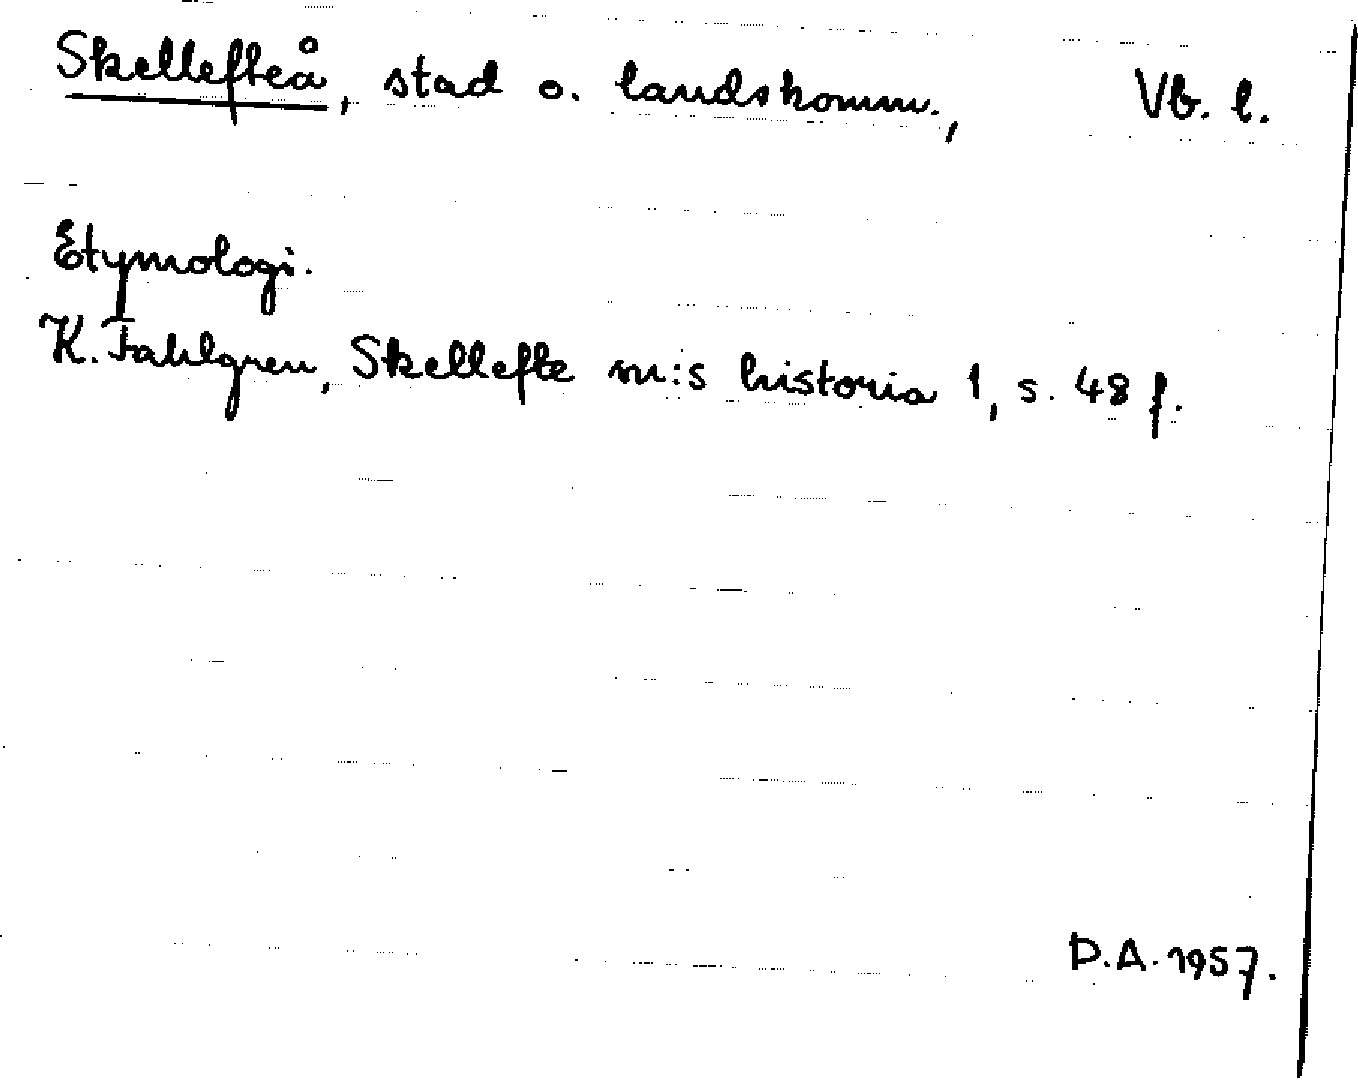 Skellefteå, stad o. landskomm., Vb. l.
Etymologi.
K. Fahlgren, Skellefte sn:s historia 1, s. 48 f.
D.A. 1957.